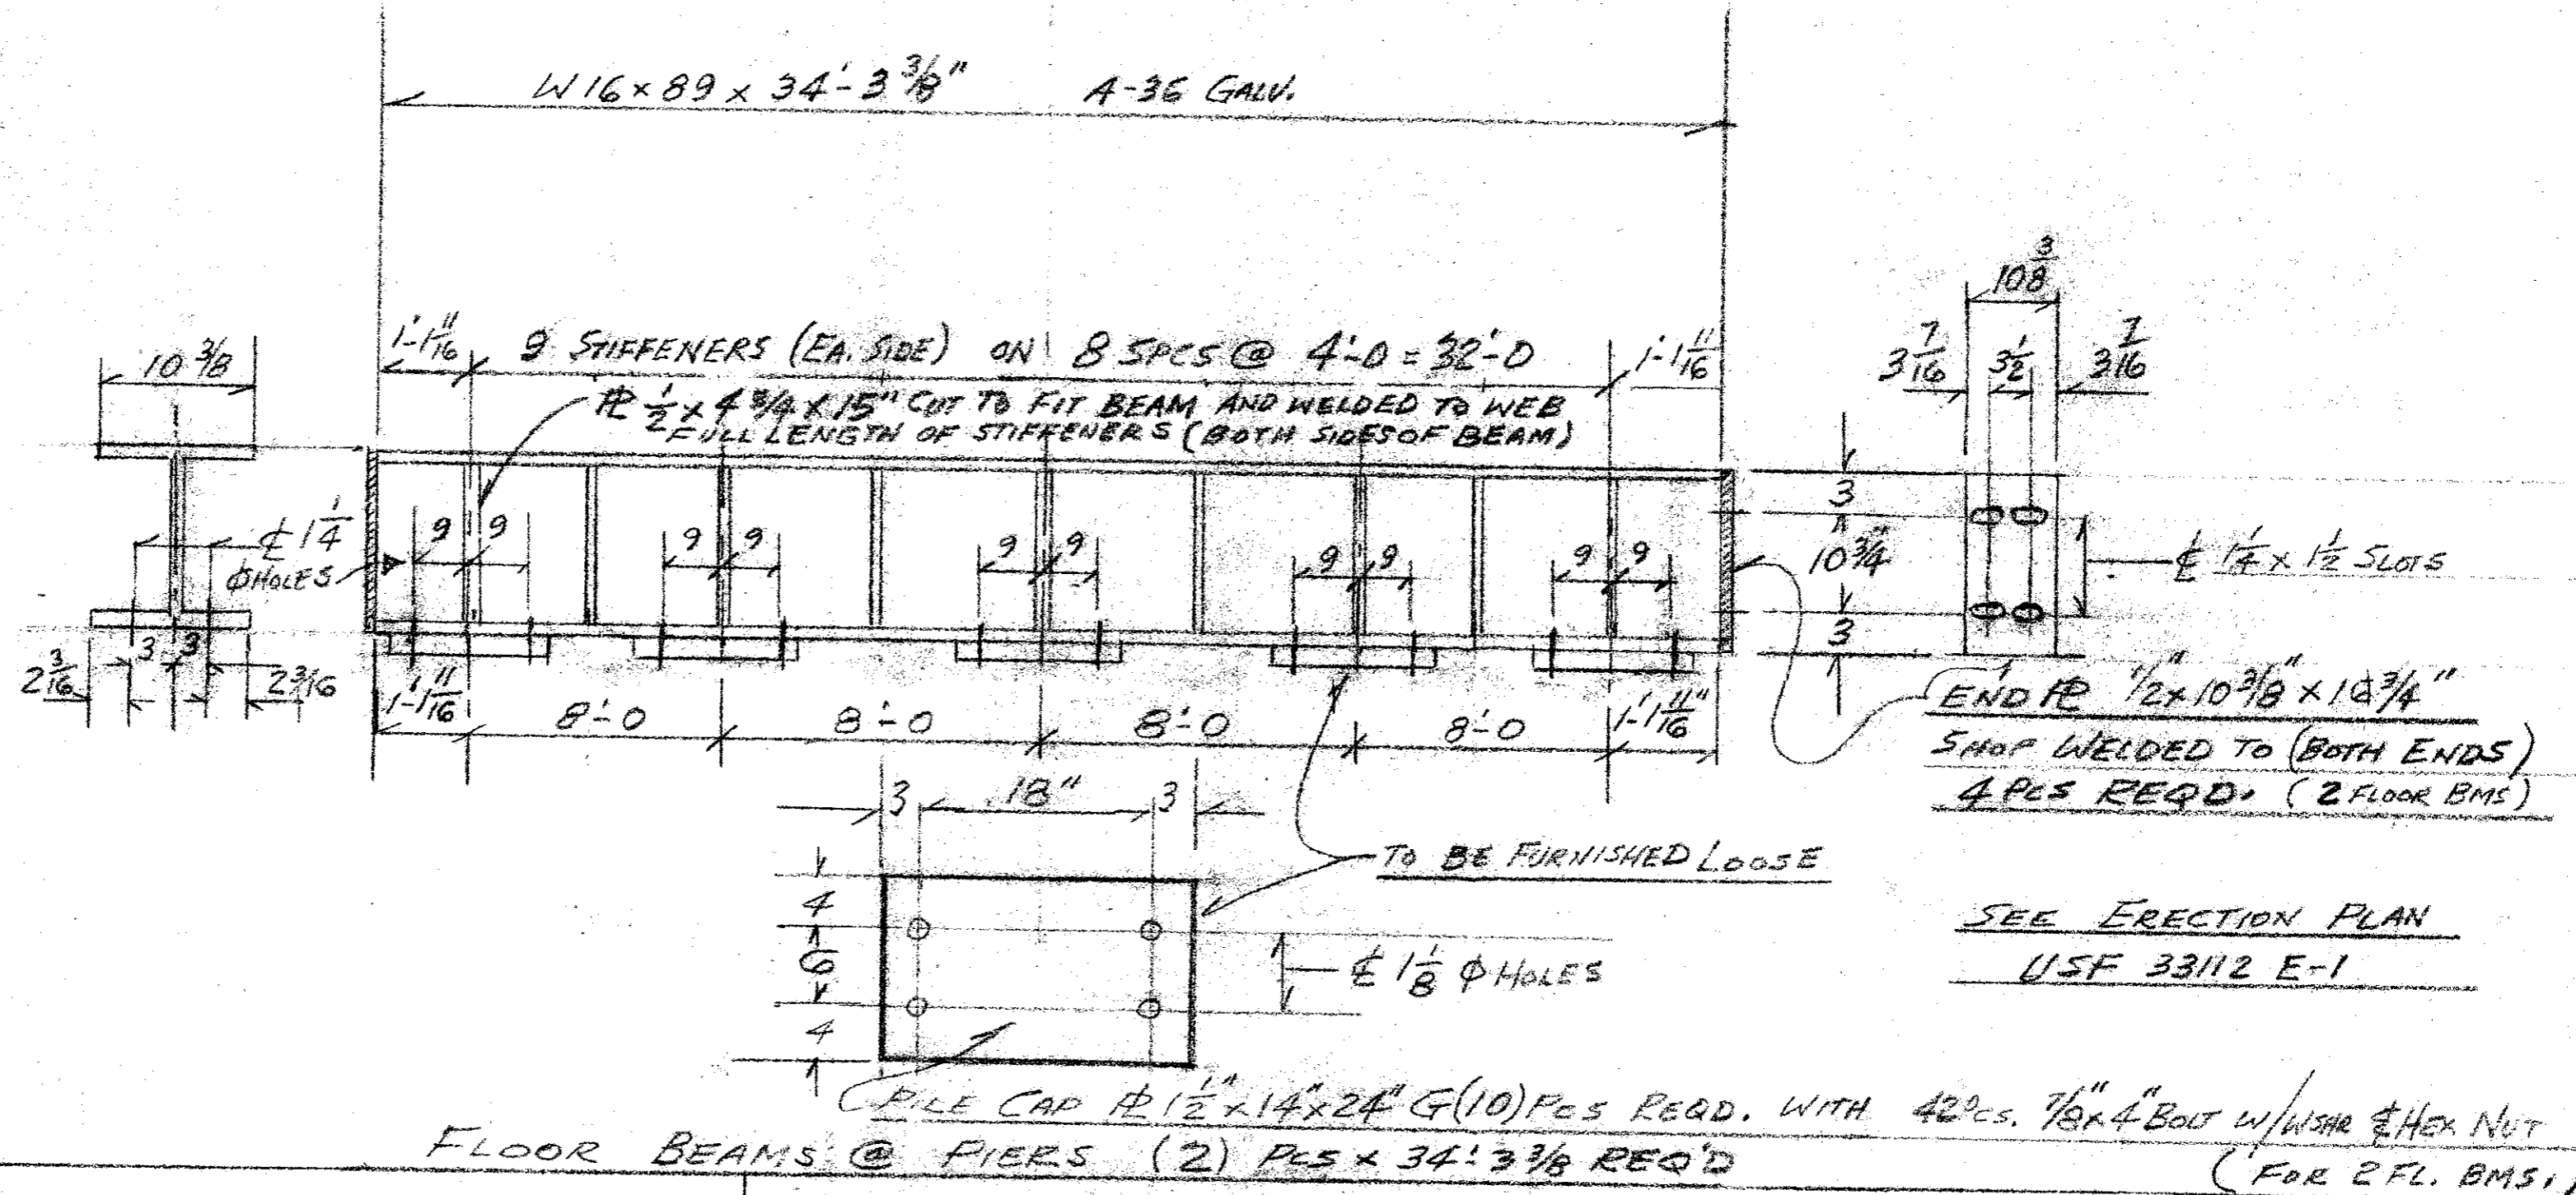 W 16 x 89 x 34'-3 3/8" A-36 GALV.
1'-1 11/16 9 STIFFENERS (EA. SIDE) ON 8 SPCS @ 4'-0 = 32'-0 1'-1 11/16
℄ 1/2 x 4 3/4 x 15" CUT TO FIT BEAM AND WELDED TO WEB
FULL LENGTH OF STIFFENERS (BOTH SIDES OF BEAM)
10 3/8
℄ 1 1/4
Φ HOLES
3 3
2 3/16 2 3/16
9 9 9 9 9 9 9 9 9 9
1'-1 11/16 8'-0 8'-0 8'-0 8'-0 1'-1 11/16"
10 3/8
3 7/16 3 1/2 3 7/16
3
10 3/4"
3
℄ 1 1/4 x 1 1/2 SLOTS
END ℄ 1/2" x 10 3/8" x 16 3/4"
SHOP WELDED TO (BOTH ENDS)
4 PCS REQD. (2 FLOOR BMS)
3 18" 3
4
6
4
TO BE FURNISHED LOOSE
℄ 1 1/8 Φ HOLES
SEE ERECTION PLAN
USF 33112 E-1
PILE CAP ℄ 1 1/2" x 14" x 24" G(10) PCS REQD. WITH 42 PCS. 7/8" x 4" BOLT W/WSHR & HEX NUT
(FOR 2 FL. BMS.)
FLOOR BEAMS @ PIERS (2) PCS x 34'-3 3/8 REQ'D